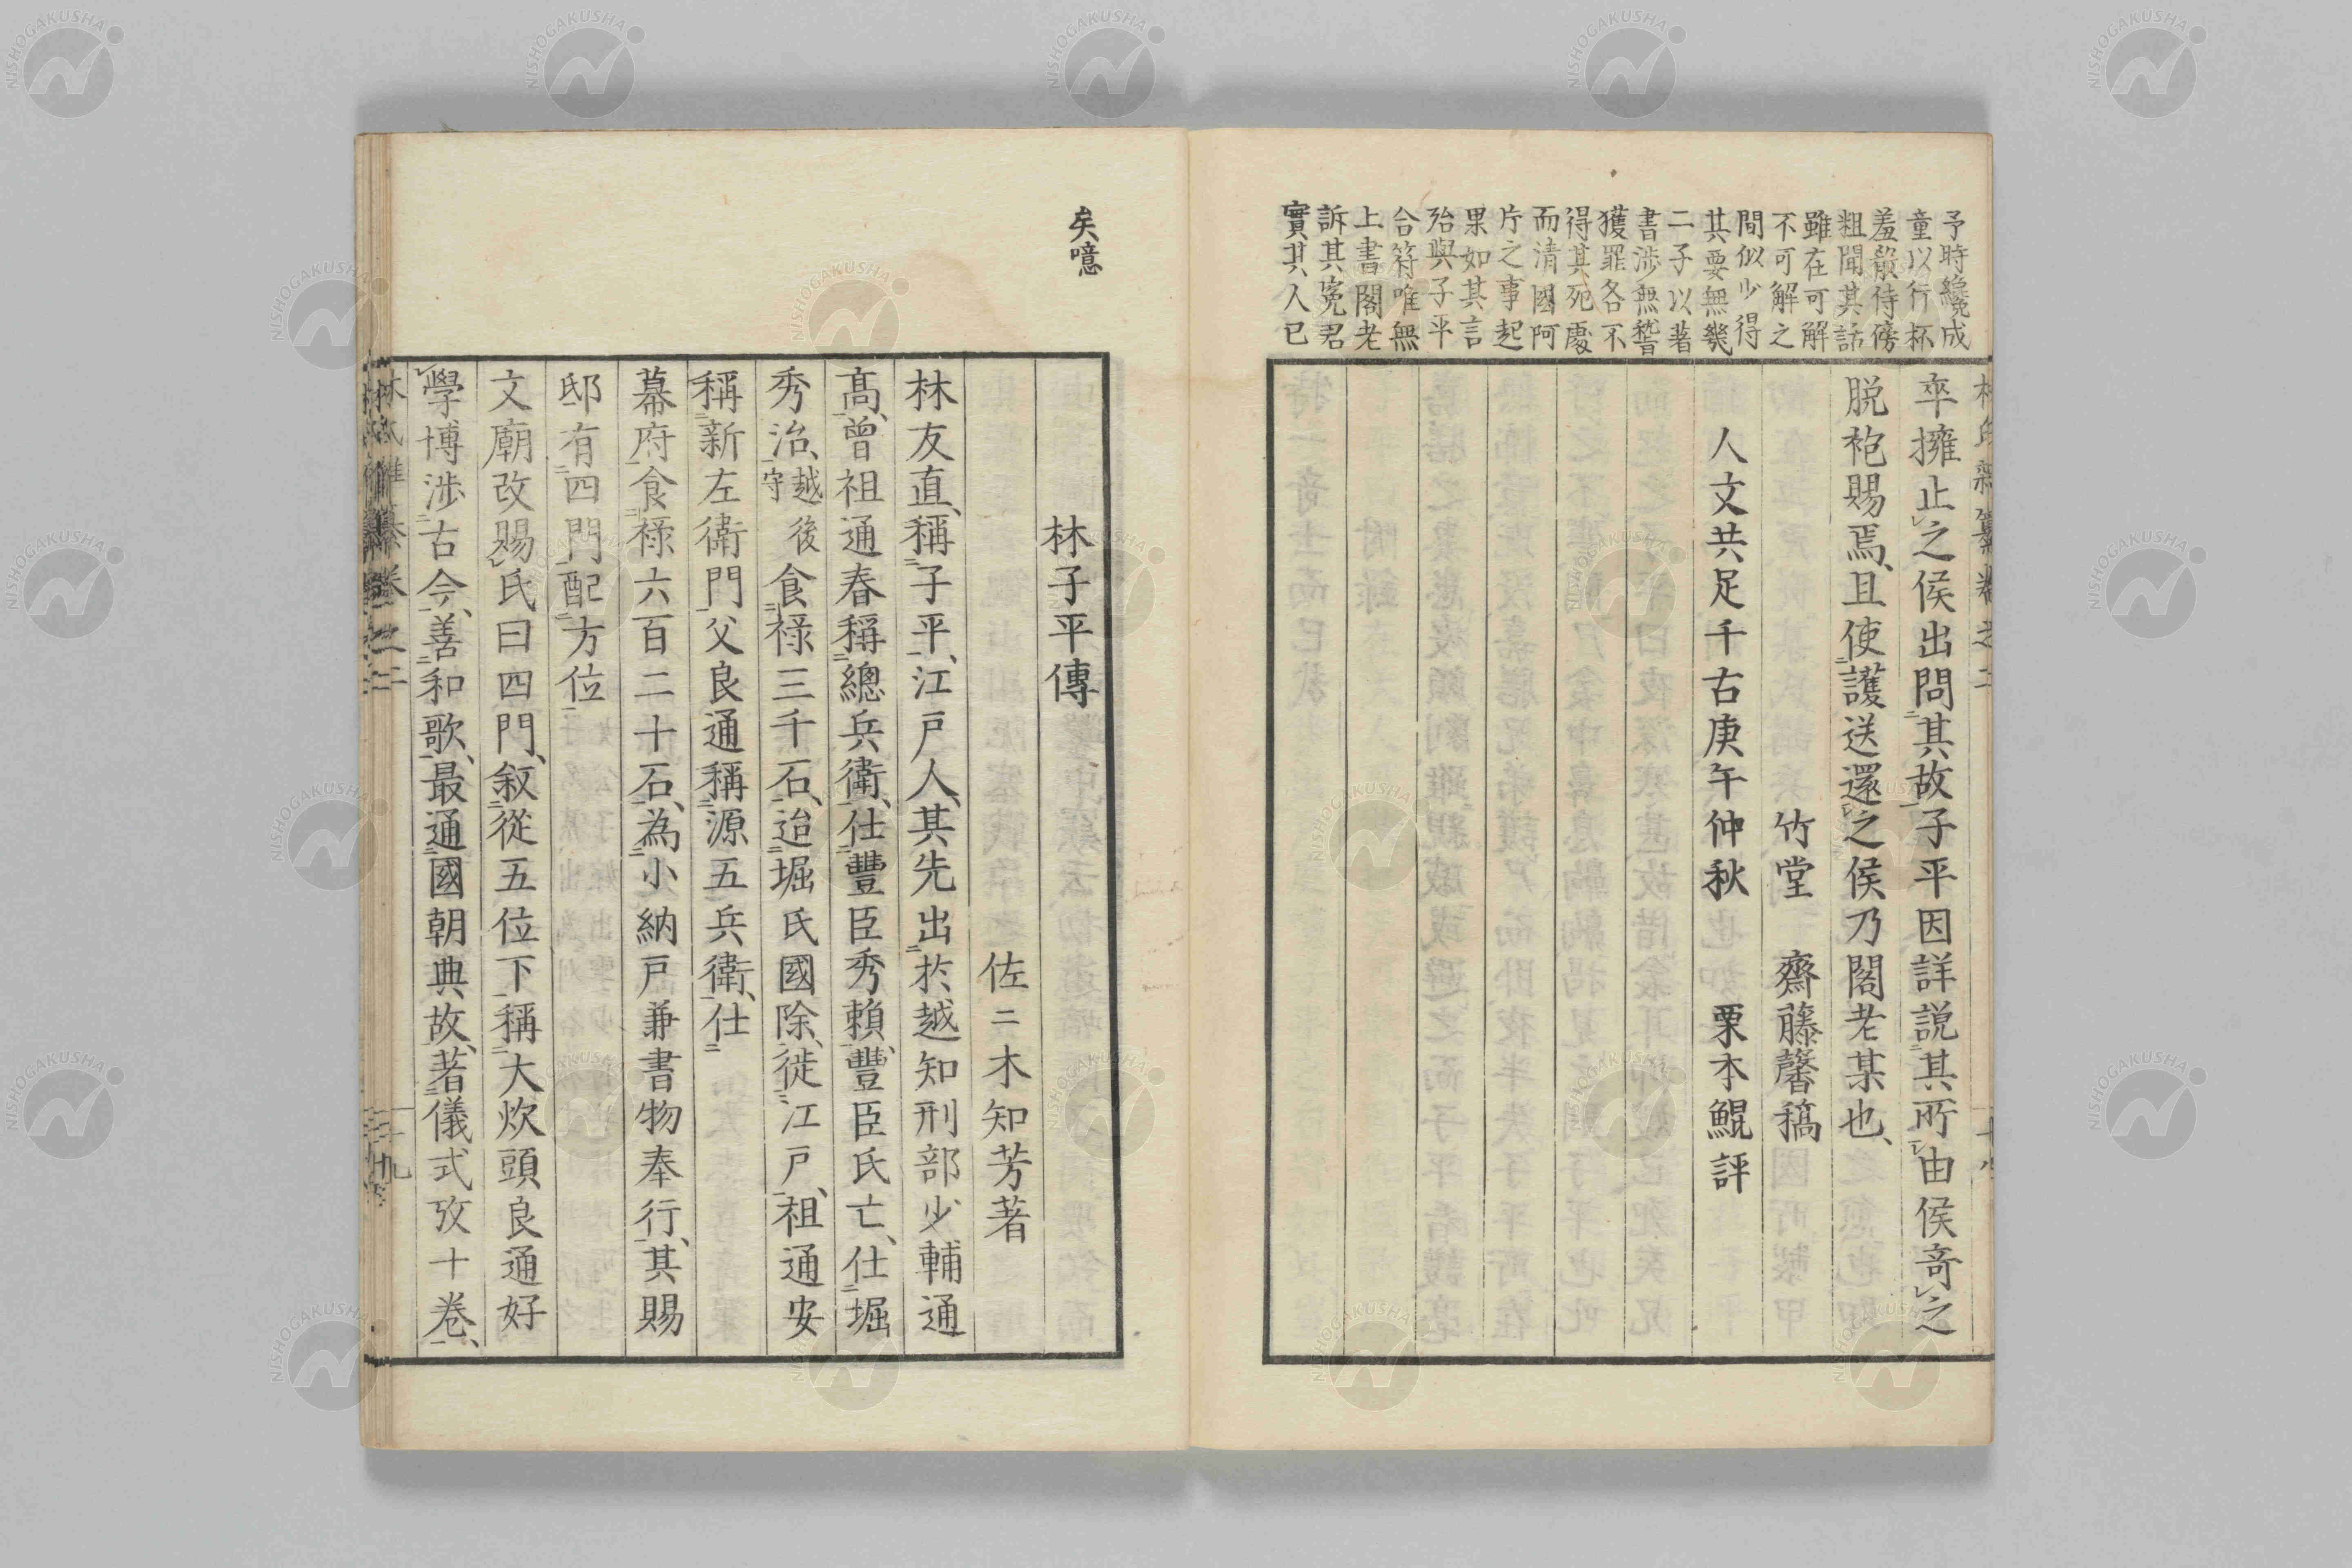 予時纔成
童以行杯
羞散侍傍
粗聞其話
雖在可解
不可解之
間似少得
其要無幾
二子以著
書渉無稽
獲罪各不
得其死處
而清國阿
片之事起
果如其言
殆與子平
合符唯無
上書閣老
訴其寃君
實其人已
卒擁止之侯出問其故子平因詳説其所由侯奇之
脱袍賜焉、且使護送還之侯乃閣老某也、
竹堂　齋藤馨稿
人文共足千古庚午仲秋　栗本鯤評
矣噫
林子平傳
佐二木知芳著
林友直、稱子平、江戸人、其先出於越知刑部少輔通
髙、曾祖通春稱總兵衛、仕豐臣秀賴、豐臣氏亡、仕堀
秀治、越後守食祿三千石、迨堀氏國除、徙江戸、祖通安
稱新左衛門父良通稱源五兵衛、仕
幕府食祿六百二十石、為小納戸兼書物奉行、其賜
邸有四門配方位
文廟改賜氏曰四門、敍從五位下稱大炊頭良通好
學博渉古今、善和歌、最通國朝典故、著儀式攷十卷、
NISHOGAKUSHA